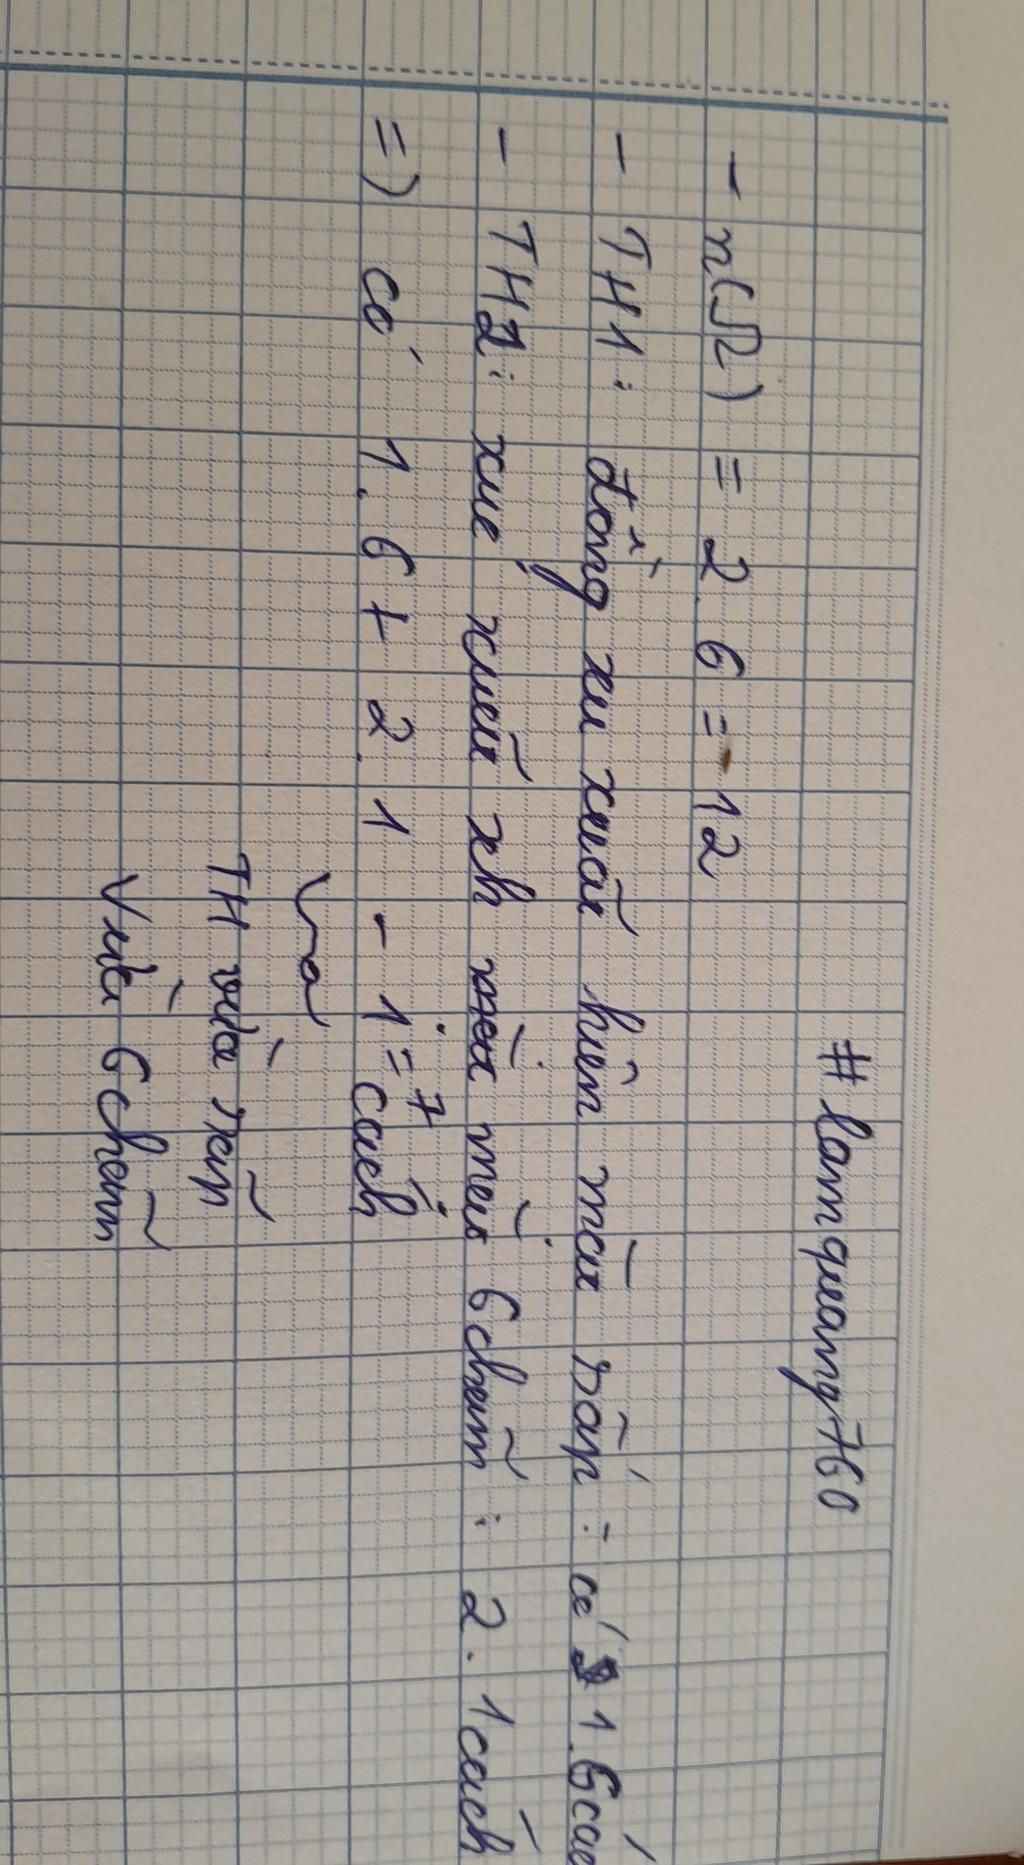 # lamquang760
- n(Ω) = 2.6 = 12
- TH1: đồng xu xuất hiện mặt sấp: có 1.6 các
- TH2: xúc xắc xh mặt 6 chấm: 2.1 cách
=) có 1.6 + 2.1 - 1 = 7 cách
TH vừa sấp
Vừa 6 chấm